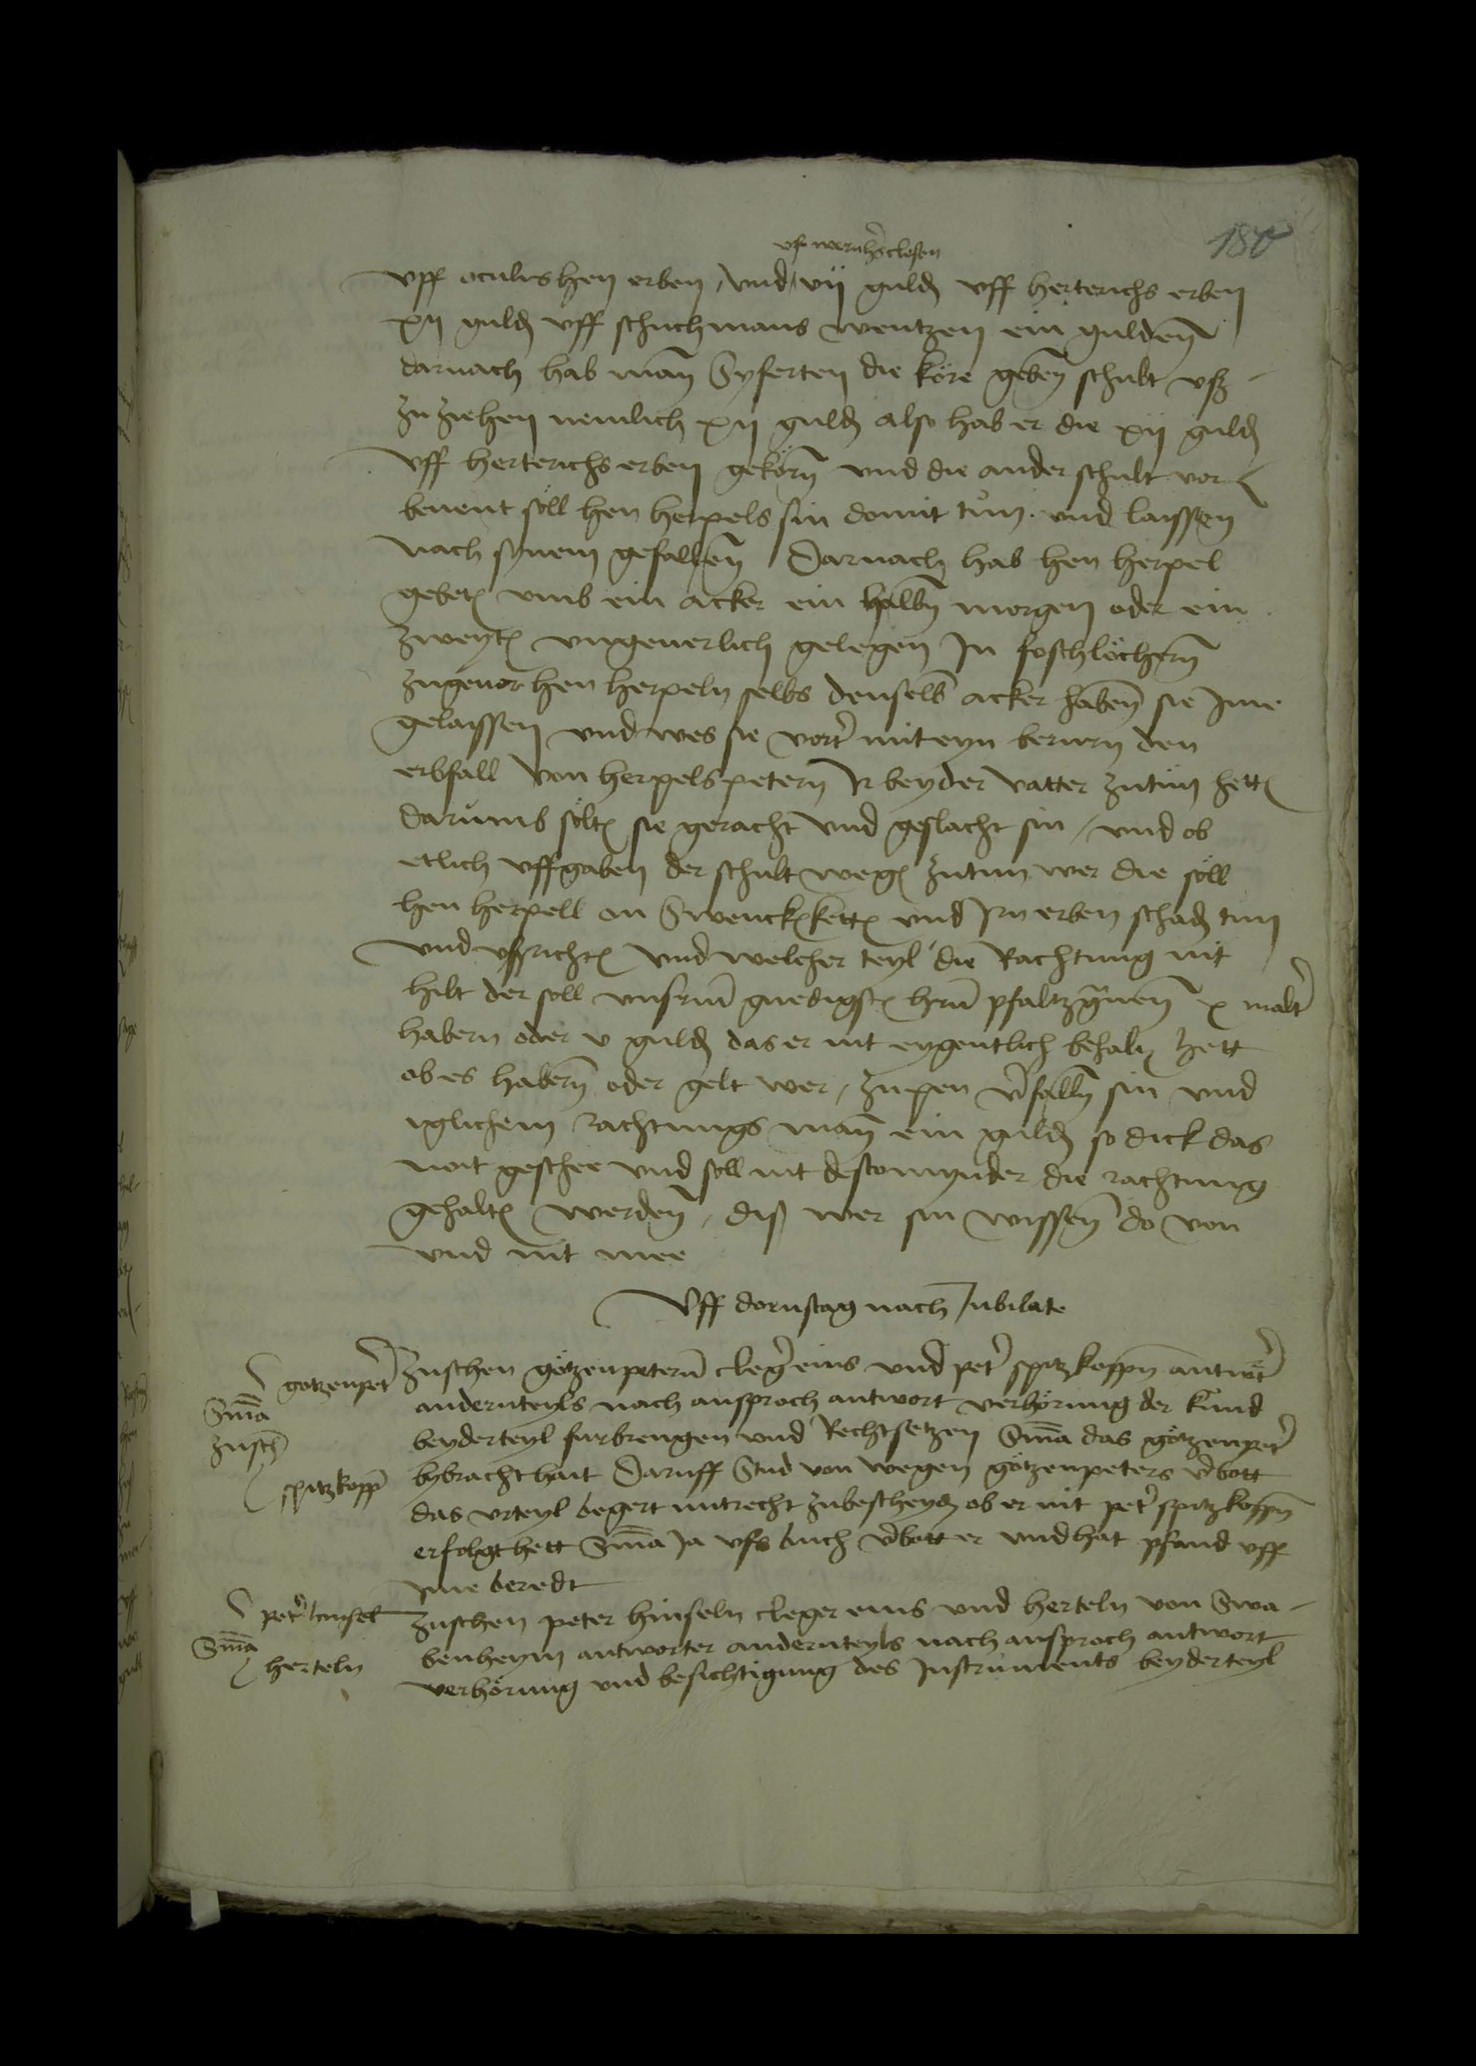 180
vff wernh's clesen
vff oculus hen erben / vnd vij guld vff herterichs erben
xij guld vff schuchmans wentzen ein gulden
darnach hab man Syferten die köre geben schult vß
zu ziehen nemlich xij guld also hab er die xij guld
vff herterichs erben gekorn vnd die ander schult vor
benent söll hen herpels sin domit tůn vnd laissen
nach synem gefallen Darnach hab hen herpel
gebetē vmb ein acker ein halbn morgen oder ein
zweytē vngeuerlich gelegen In foschlöchern
zugenor hen herpeln selbs denselb acker haben sie Ime
gelaissen vnd wes sie vort' mit eyn berurn den
erbfall von herpels petern Ir beyder vatter zutun hettē
darumb söltē sie geracht vnd geslacht sin / vnd ob
etlich vffgaben der schult wegē zutun wer die söll
hen herpell on Swenckē kettē vnd Irn erben schad tun
vnd vßrichtē vnd welcher teyl die Rachtung nit
hilt der soll vnserm gnedigstē hrn pfaltzgrauen x malt'
habern oder v guld das er nit eygentlich behaltē hett
ob es habern oder gelt wer / zu pen v'falln sin vnd
iglichem rachtungs man ein guld so dick das
noit geschee vnd soll nit destomynder die rachtung
gehaltē werden / diß wer sin wissen do von
vnd nit mee
Vff dornstag nach Jubilate
gotzenpet'
Sma
zusch
spitzkopp
Zuschen götzenpetern cleg' eins vnd pet' spitzkoppn antwt'
andernteyls nach ansproch antwort verhörung der kund
beyderteyl furbrengen vnd Rechtsetzen Sma das götzenpet'
bybracht hait Daruff Stud von wegen götzenpeters v'bott
das vrteyl begert mit recht zubescheyd ob er nit pet' spitzkoppn
erfolgt hett Sma Ja vfs buch v'bott er vnd hat pfand vff
Ime beredt
pet' hinsel
Sma
herteln
Zuschen peter hinseln cleger eins vnd herteln von Swa-
benheym antworter andernteyls nach ansproch antwort
verhörung vnd besichtigung des Instruments beyderteyl